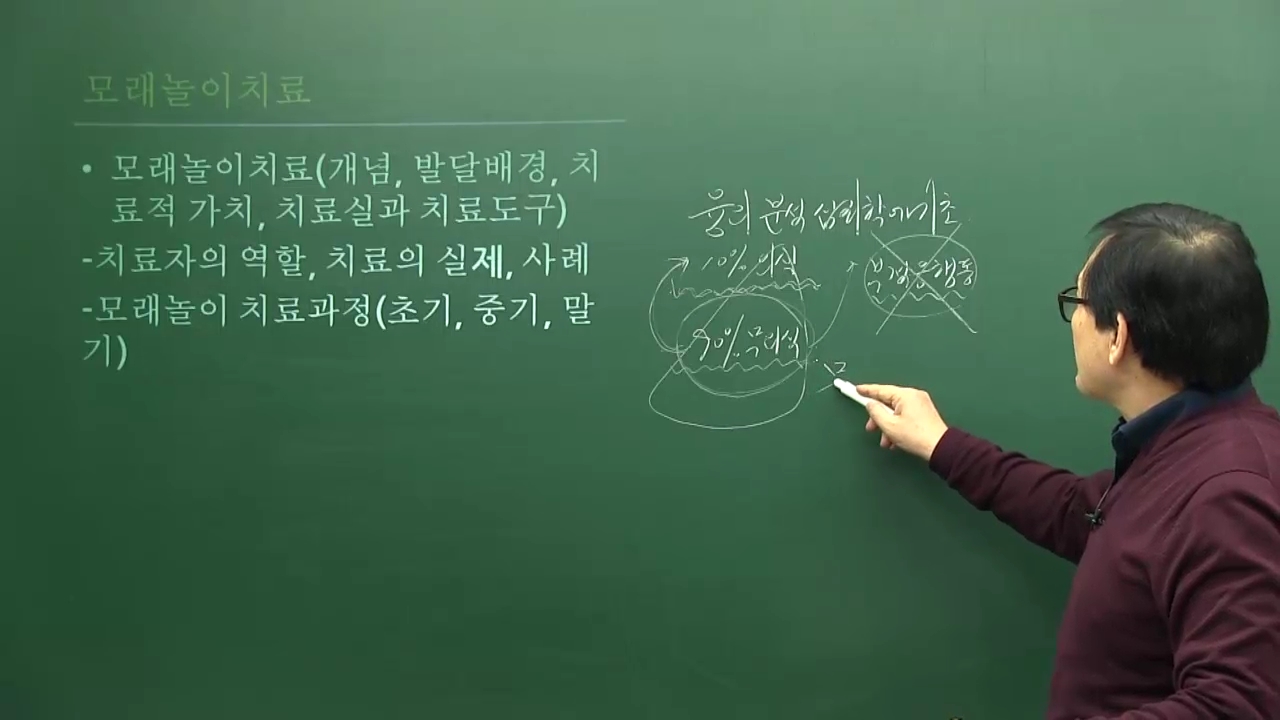 모래놀이치료
• 모래놀이치료(개념, 발달배경, 치
료적 가치, 치료실과 치료도구)
-치료자의 역할, 치료의 실제, 사례
-모래놀이 치료과정(초기, 중기, 말
기)
융의 분석 심리학에 기초
10% 의식
90% 무의식
부적응행동